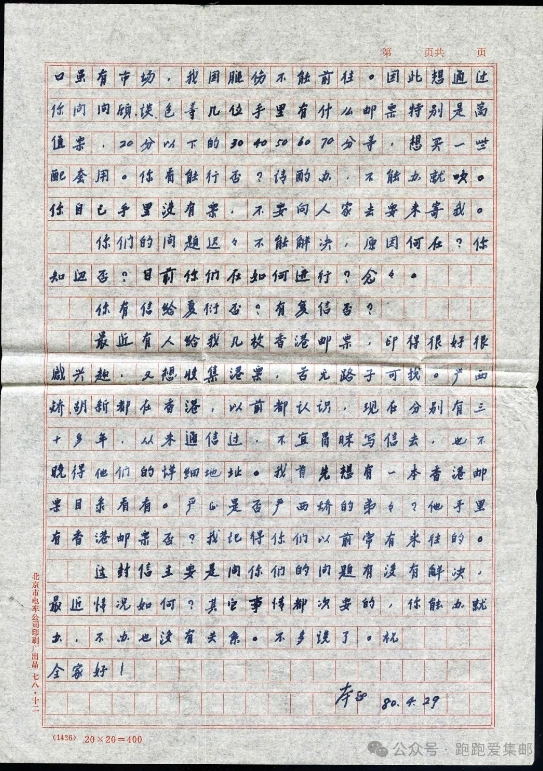 第 页共 页
口虽有市场，我因腿伤不能前往。因此想通过
你问问顾，谈色等几位手里有什么邮票特别是高
值票，20分以下的30 40 50 60 70分等，想买一些
配套用。你看能行否？请酌办，不能办就吹。
你自己手里没有票，不要向人家去要来寄我。
你们的问题迟々不能解决，原因何在？你
知迟否？目前你们在如何进行？念々。
你有信给夏衍否？有复信否？
最近有人给我几枚香港邮票，印得很好很
感兴趣，又想收集港票，苦无路子可找。严西
娇、胡新都在香港，以前都认识，现在分别有三
十多年，从未通信过，不宜冒昧写信去，也不
晓得他们的详细地址。我首先想有一本香港邮
票目录看看。严 是否严西娇的弟々？他手里
有香港邮票否？我记得你们以前常有来往的。
这封信主要是问你们的问题有没有解决，
最近情况如何？其它事情都次要的，你能办就
办，不办也没有关系。不多谈了。祝
全家好！
80.4.29
北京市电车公司印刷厂出品 七八·十二
(1436) 20×20=400
公众号·跑跑爱集邮